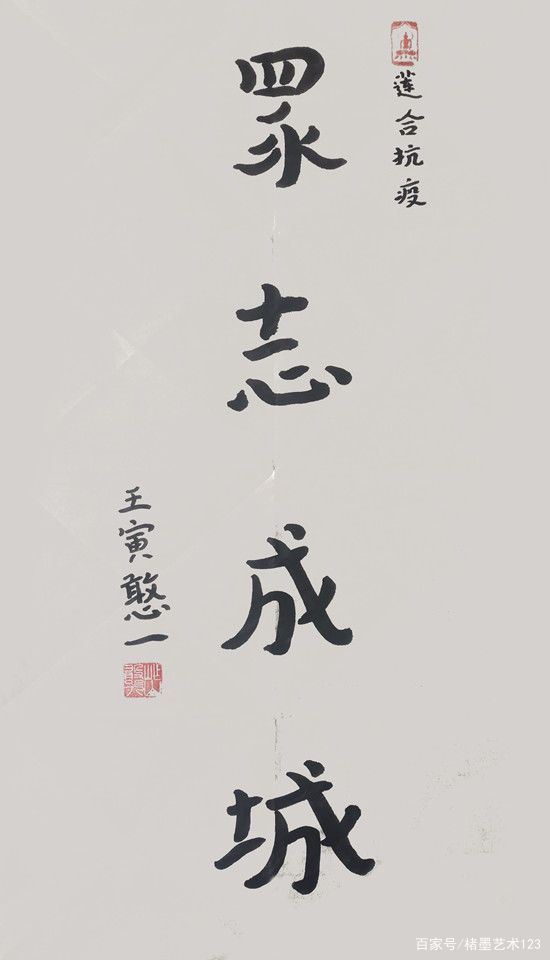 蓮合抗疫
眾志成城
壬寅憨一
百家号/楮墨艺术123